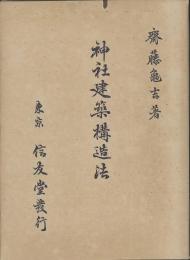 齋藤龜吉著
神社建築構造法
東京 信友堂發行